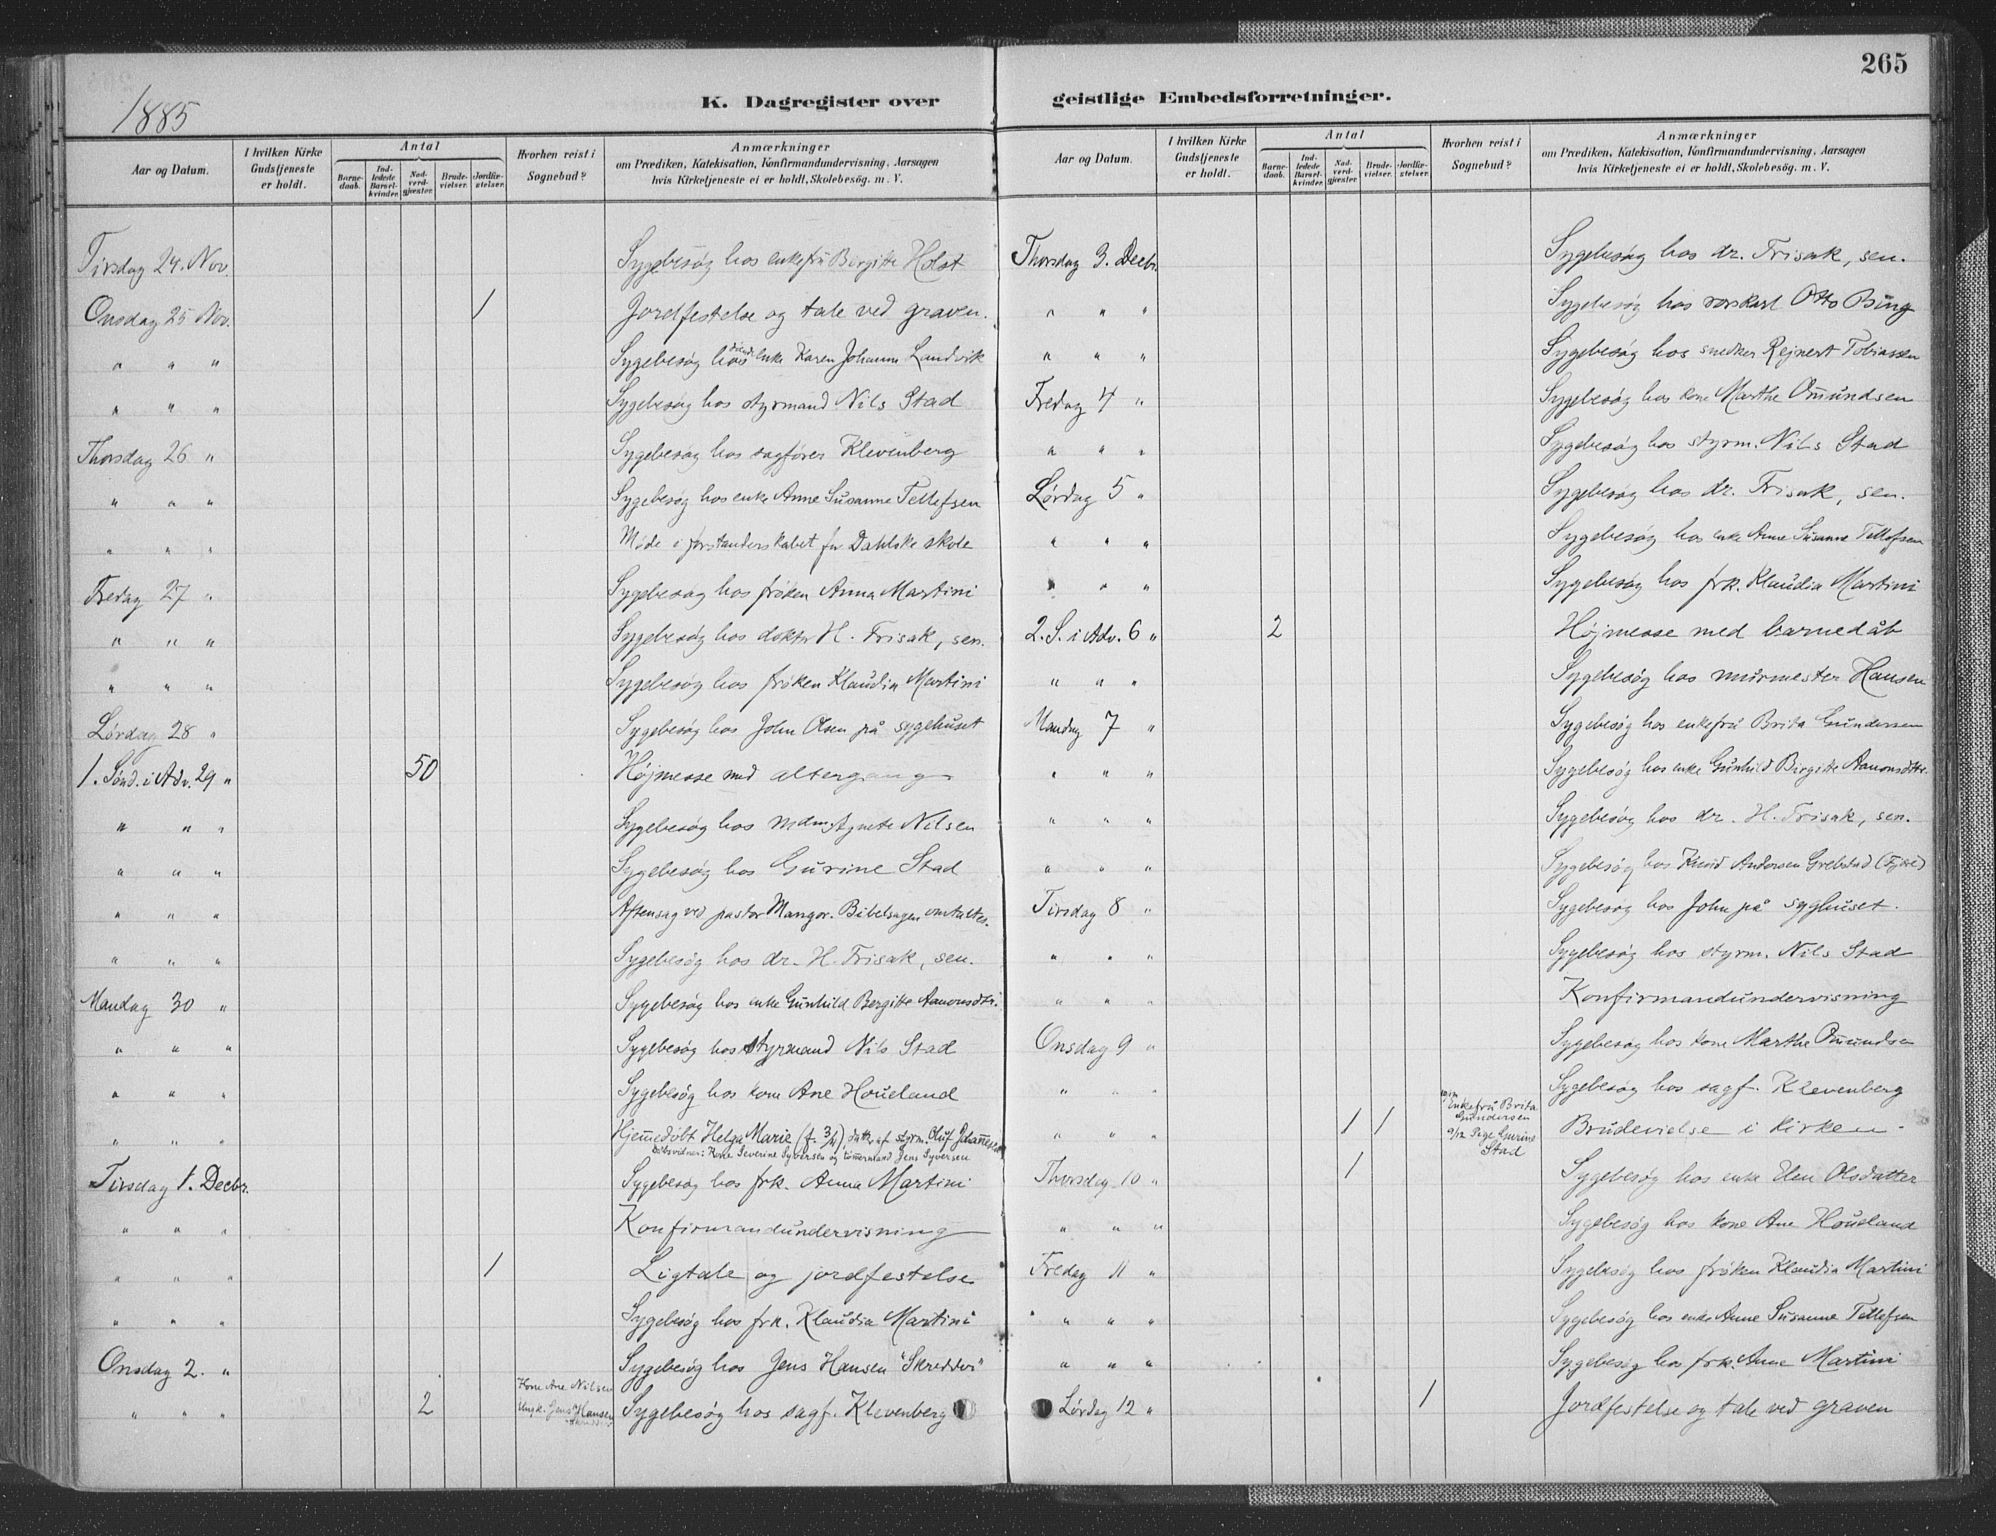 265
1885
K. Dagregister over geistlige Embedsforretninger.
Aar og Datum.
I hvilken Kirke Gudstjeneste er holdt.
Antal
Barne-daab.
Ind-ledede Barsel-kvinder.
Nad-verd-gjæster.
Brude-vielser.
Jordfæ-stelser.
Hvorhen reist i Sognebud?
Anmærkninger
om Prædiken, Katekisation, Konfirmandundervisning, Aarsagen
hvis Kirketjeneste ei er holdt, Skolebesøg. m. V.
Tirsdag 24. Nov. Sygebesøg hos enkefrü Birgitte Holst
Onsdag 25 Nov. 1 Jordfestelse og tale ved graven.
" " " Sygebesøg hos enke Karen Johanne Landvik
" " " Sygebesøg hos styrmand Nils Stad
Thorsdag 26 " Sygebesøg hos sagfører Klevenberg
" " " Sygebesøg hos enke Anne Susanne Tellefsen
" " " Møde i forstanderskabet for Dahlske skole
Fredag 27 " Sygebesøg hos frøken Anna Martini
" " " Sygebesøg hos doktor H. Frisak, sen.
" " " Sygebesøg hos frøken Klaudia Martini
Lørdag 28 " Sygebesøg hos John Olsen på sygehuset
1. Sönd. i Adv. 29 " 50 Højmesse med altergang
" " " Sygebesøg hos mdm Agnete Nilsen
" " " Sygebesøg hos Gurine Stad
" " " Aftensag ved pastor Mangor. Bibelsagen omtaltes.
" " " Sygebesøg hos dr. H. Frisak, sen.
Mandag 30 " Sygebesøg hos enke Gunhild Bergitte Aanonsdtr.
" " " Sygebesøg hos styrmand Nils Stad
" " " Sygebesøg hos kone Ane Houeland
" " " Hjemmedøbt Helga Marie (f. 3/4), datter af styrm. Oluf Johannesen
Dåbsvidner: Kone Severine Syversen og tømmermand Jens Syversen
Tirsdag 1. Decbr. Sygebesøg hos frk. Anna Martini
" " " Konfirmandundervisning
" " " 1 Ligtale og jordfestelse
" " " Sygebesøg hos frk. Klaudia Martini
Onsdag 2. " Sygebesøg hos Jens Hansen "Skredder"
" " " 2 Kone Ane Nilsen Ungk. Jens Hansen Sygebesøg hos sagf. Klevenberg
Aar og Datum.
I hvilken Kirke Gudstjeneste er holdt.
Antal
Barne-daab.
Ind-ledede Barsel-kvinder.
Nad-verd-gjæster.
Brude-vielser.
Jordfæ-stelser.
Hvorhen reist i Sognebud?
Anmærkninger
om Prædiken, Katekisation, Konfirmandundervisning, Aarsagen
hvis Kirketjeneste ei er holdt, Skolebesøg. m. V.
Thorsdag 3. Decbr. Sygebesøg hos dr. Frisak, sen.
" " " Sygebesøg hos Otto Bing
" " " Sygebesøg hos snedker Rejnert Tobiassen
Fredag 4 " Sygebesøg hos kone Marthe Omundsen
" " " Sygebesøg hos styrm. Nils Stad
Lørdag 5 " Sygebesøg hos dr. Frisak, sen.
" " " Sygebesøg hos enke Anne Susanne Tellefsen
" " " Sygebesøg hos frk. Klaudia Martini
2. S. i Adv. 6 " 2 Højmesse med barnedåb
" " " Sygebesøg hos murmester Hansen
Mandag 7 " Sygebesøg hos enkefrü Brita Gundersen
" " " Sygebesøg hos enke Gunhild Birgitte Aanonsdttr.
" " " Sygebesøg hos dr. H. Frisak, sen.
" " " Sygebesøg hos Knud Andersen Grebstad (Fjære)
Tirsdag 8 " Sygebesøg hos John på syghuset.
" " " Sygebesøg hos styrm. Nils Stad
" " " Konfirmandundervisning
Onsdag 9 " Sygebesøg hos kone Marthe Omundsen
" " " Sygebesøg hos sagf. Klevenberg
" " " 1 1 Enkefrü Brita Gundersen Brudevielse i kirken
Thorsdag 10 " 1 9/12 Pige Gurine Stad Sygebesøg hos enke Elen Olsdatter
" " " Sygebesøg hos kone Ane Houeland
Fredag 11 " Sygebesøg hos frøken Klaudia Martini
" " " Sygebesøg hos enke Anne Susanne Tellefsen
" " " Sygebesøg hos frk. Anna Martini
Lørdag 12 " 1 Jordfestelse og tale ved graven